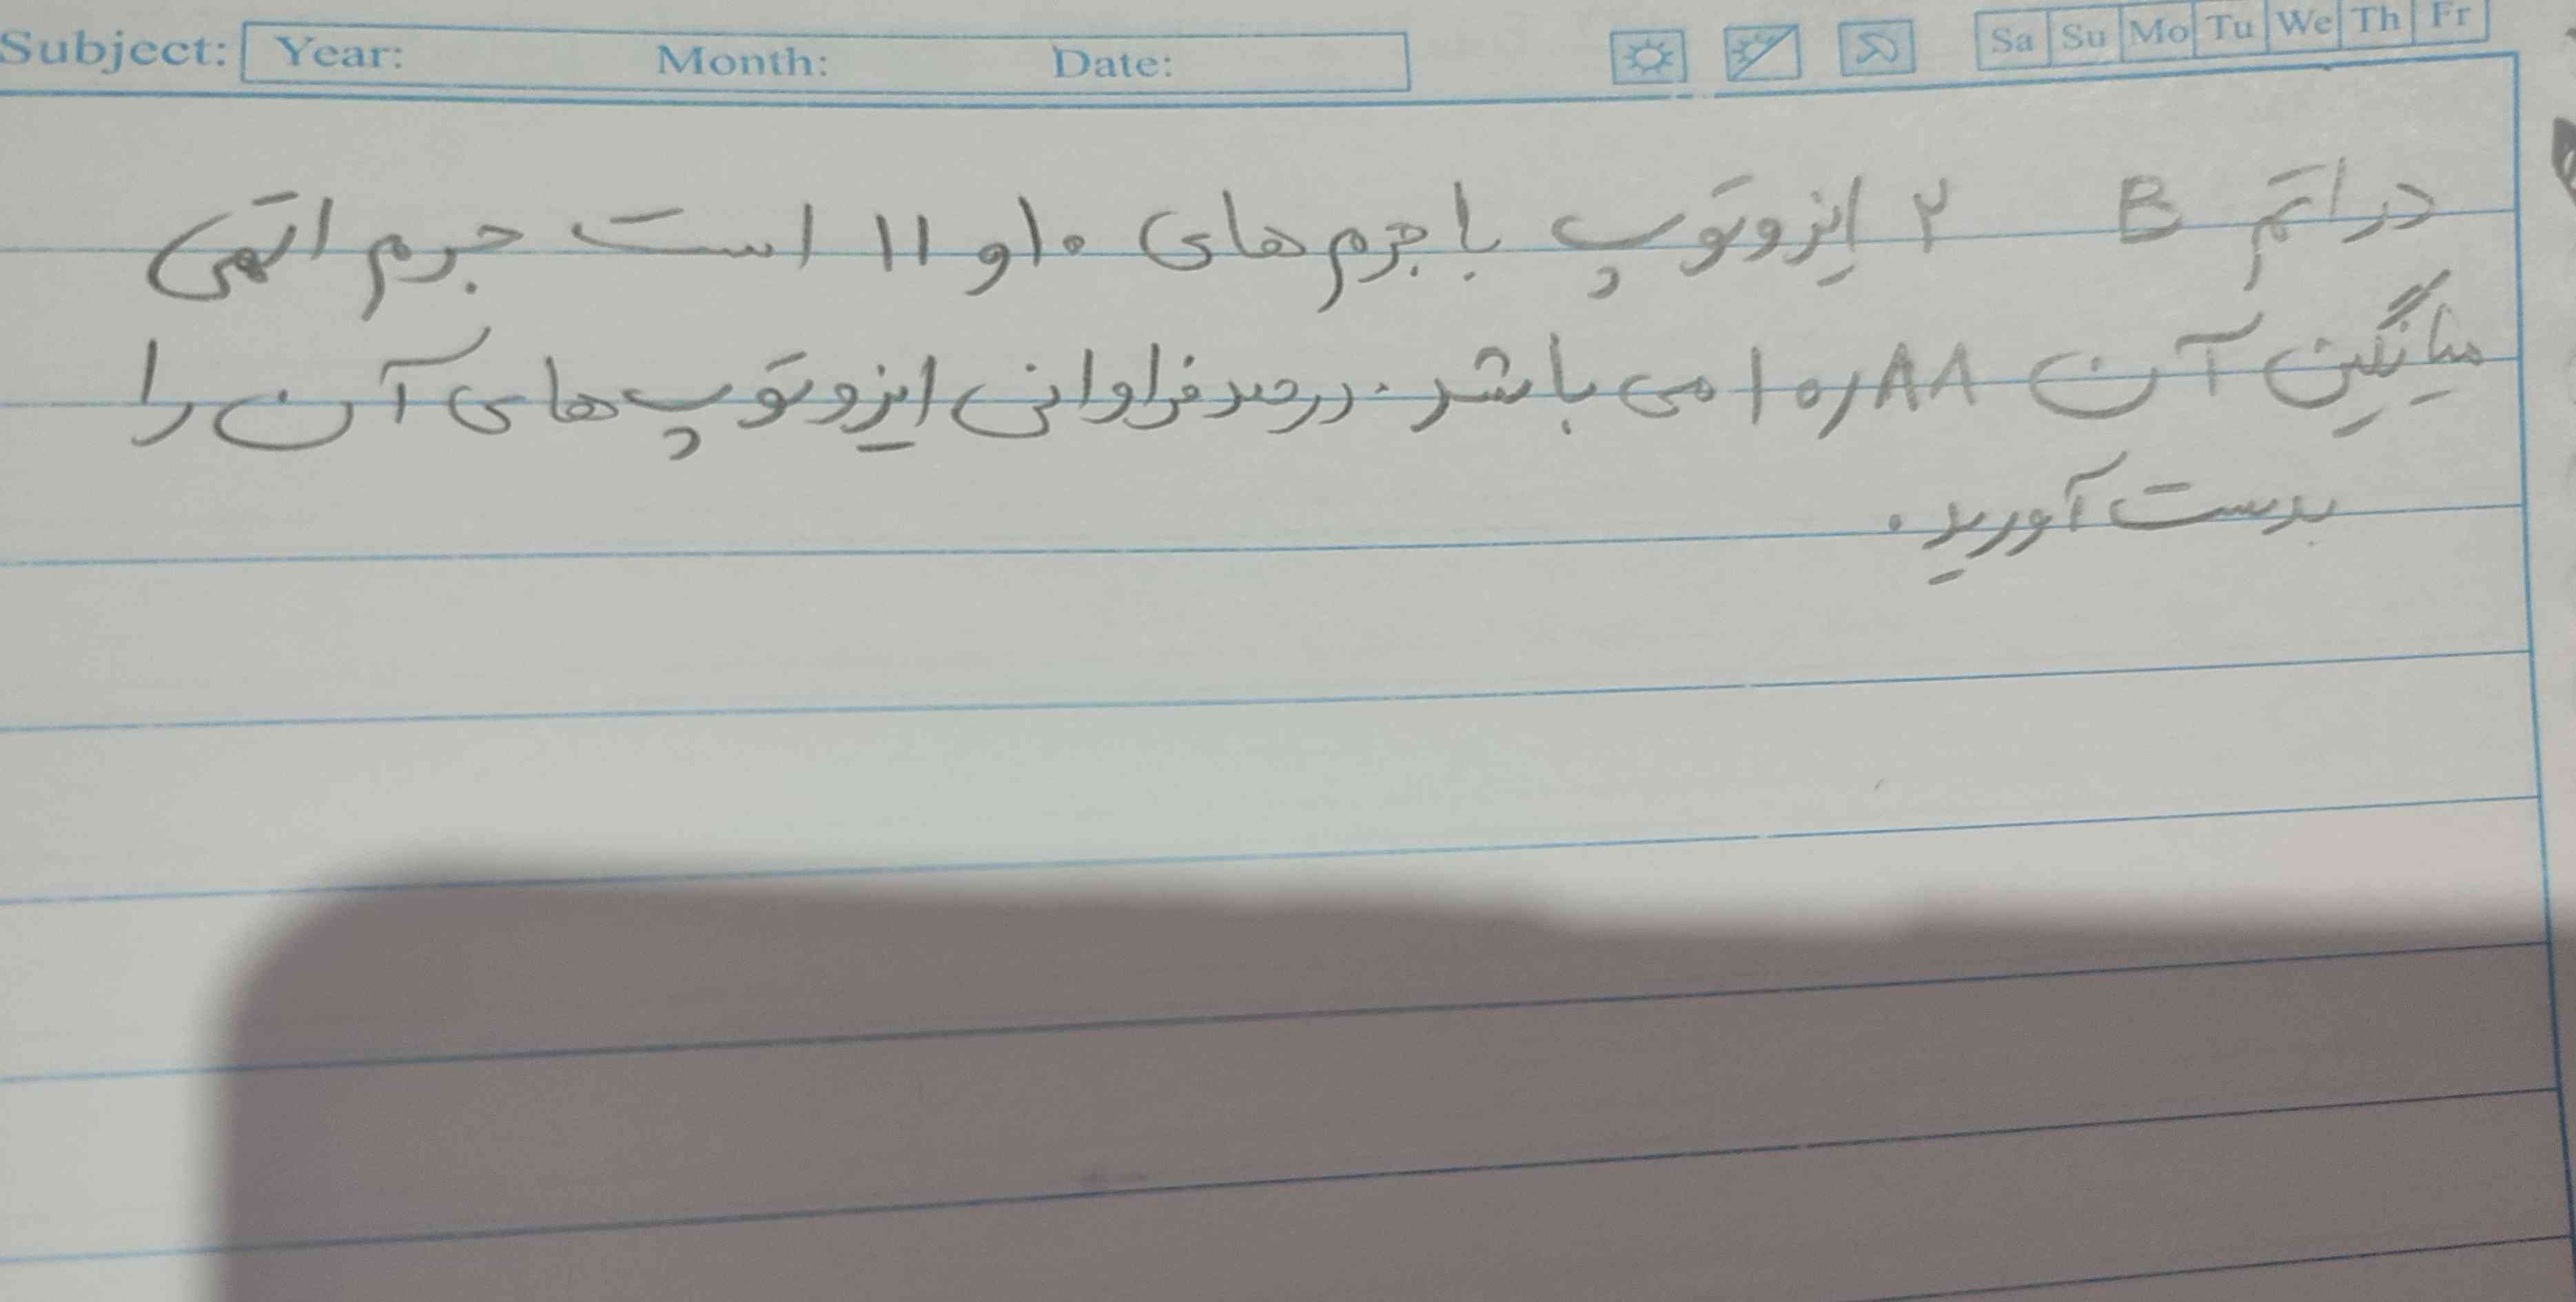 Subject: Year: Month: Date: Sa Su Mo Tu We Th Fr
در اتم B ۲ ایزوتوپ با جرم های ۱۰ و ۱۱ است جرم اتمی
میانگین آن ۱۰٫۸۸ می باشد. درصد فراوانی ایزوتوپ های آن را
بدست آورید.